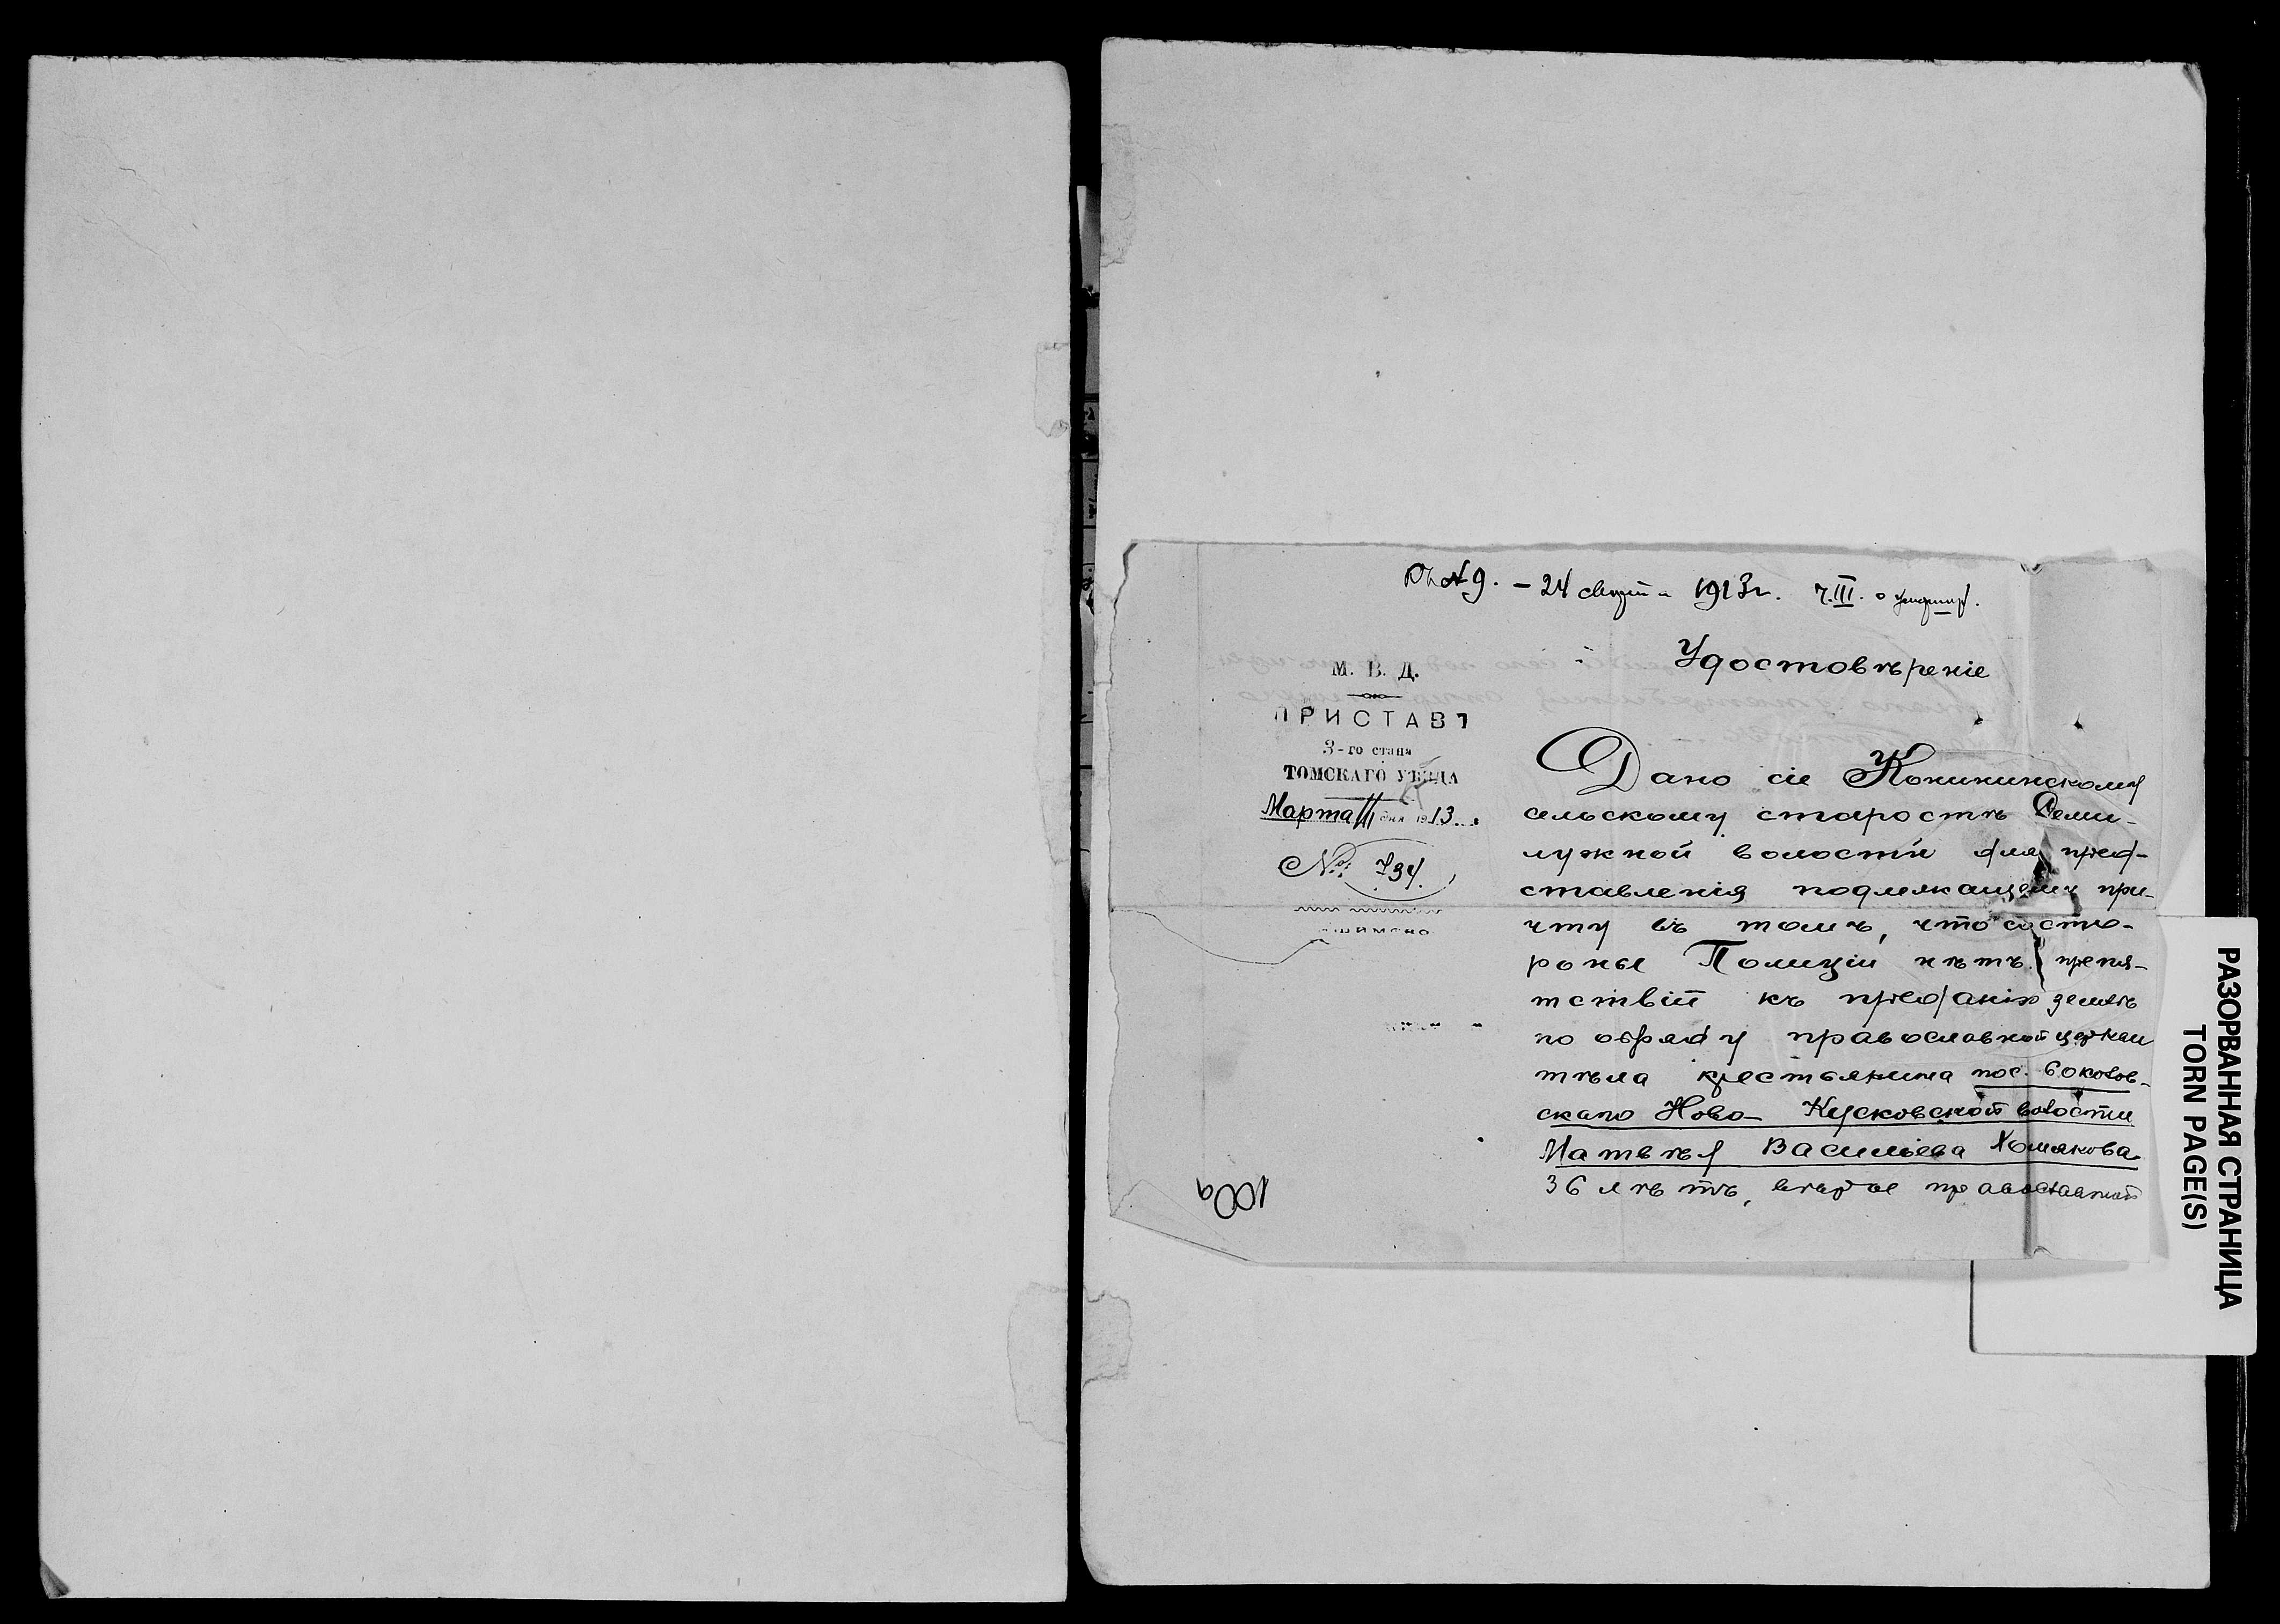 Къ № 9. – 24 август– 1913г. ч.III. о умерш.
Удостовѣреніе
М. В. Д.
ПРИСТАВЪ
3-го стана
ТОМСКАГО УѢЗДА
Марта 11 дня 1913
№ 734
Дано сіе Конининскому
сельскому старостѣ Семи-
лужной волости для пред-
ставленія подлежащему при-
чту въ томъ, что со сто-
роны Полиціи нѣтъ препя-
тствій къ преданію землѣ
по обряду православной церкви
тѣла крестьянина пос.
скаго Ново-Кусковской волости
Матвѣя Васильева Хомякова
36 лѣтъ, православной
100а
РАЗОРВАННАЯ СТРАНИЦА
TORN PAGE(S)